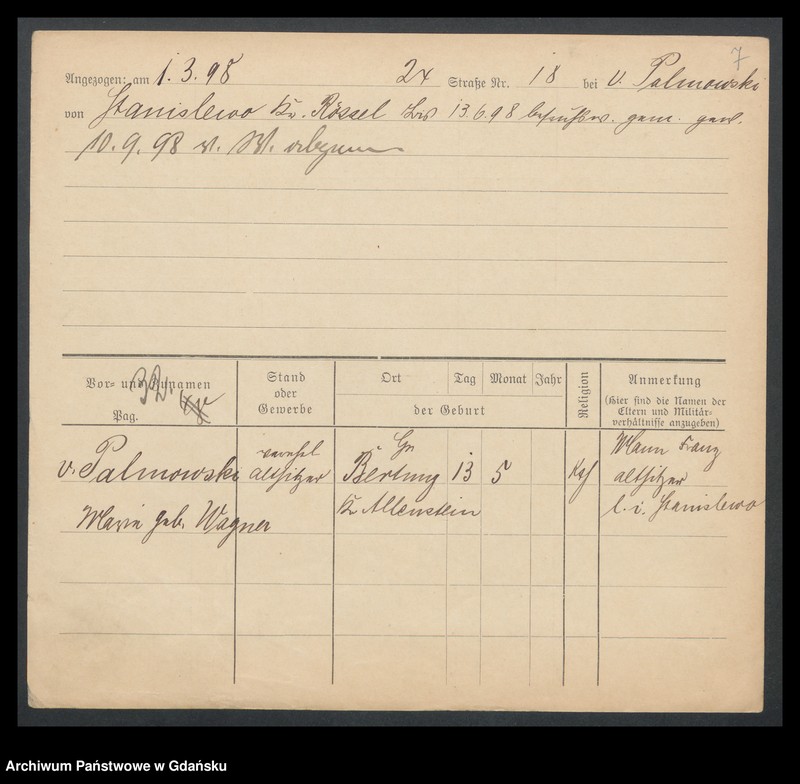 7
Angezogen: am 1.3.98 24 Straße Nr. 18 bei v. Palmowski
von Stanislewo Kr. Rössel 13.6.98 gem.
10.9.98 v. W.
Vor- und Zunamen
Pag. 32
Stand oder Gewerbe
Ort Tag Monat Jahr
der Geburt
Religion
Anmerkung
(Hier sind die Namen der
Eltern und Militär-
verhältnisse anzugeben)
v. Palmowski altsitzer Gr. Bertung 13 5 kath Mann Franz
altsitzer
Marie geb. Wagner Kr. Allenstein l. i. Stanislewo
Archiwum Państwowe w Gdańsku